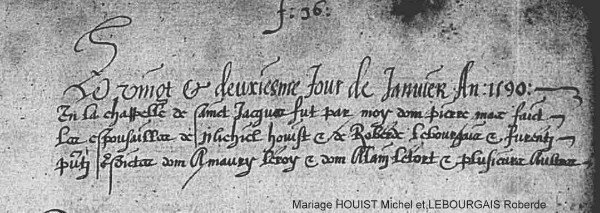 f: 36:
Le vingt & deuxiesme Jour de Janvier An: 1590:
En la chappelle de sainct Jacques fut par moy dom pierre mac faict
Les espousailles de Michiel houist & de Roberde Lebourgais & furent
pntz dom Amaury Leroy & dom Allain Lefort & plusieurs Aultres
Mariage HOUIST Michel et LEBOURGAIS Roberde